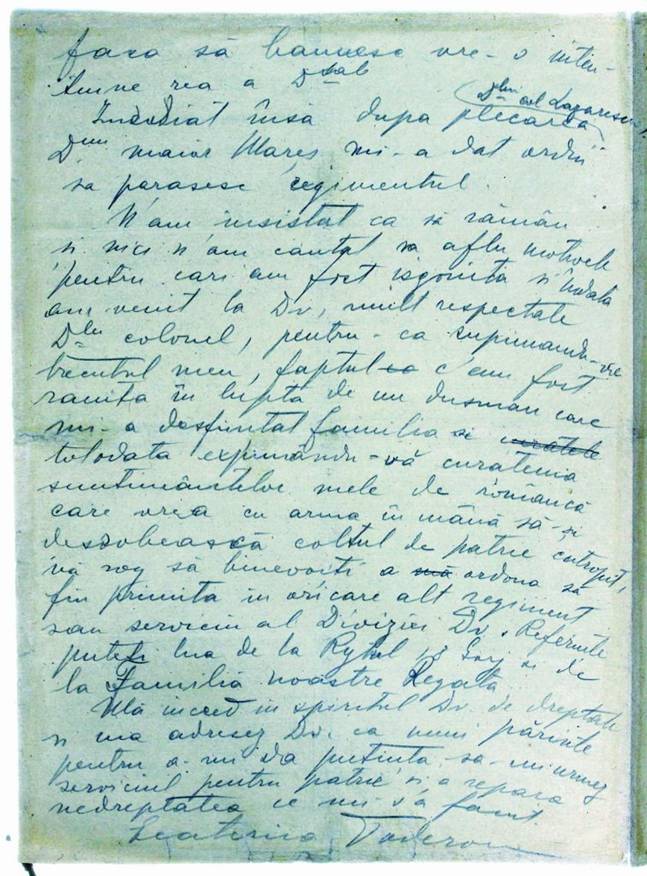 fara să banuesc vre-o inten-
tiune rea a Dsale
Imediat însă dupa plecarea
(Dlui col Lazarescu)
Dnu maior Mareș mi-a dat ordin
sa parasesc regimentul.
N'am insistat ca să rămân
si nici n'am cautat sa aflu motivele
pentru cari am fost isgonita si îndată
am venit la Dv, mult respectate
Dle colonel, pentru-ca supunandu-vă
trecutul meu, faptul ca c'am fost
ranita în lupta de un dusman care
mi-a desfiintat familia si curatele
totodata exprimându-vă curatenia
sentimentelor mele de româncă
care vrea cu arma în mână să-și
desrobească coltul de patrie cotropit,
vă rog să binevoiti a mă ordona să
fiu primita in oricare alt regiment
sau serviciu al Diviziei Dv. Referinte
puteti lua de la Rgtul 18 Gorj si de
la Familia noastre Regata
Mă incred in spiritul Dv. de dreptate
si ma adresez Dv. ca unui părinte
pentru a-mi da putinta sa-mi urmez
serviciul pentru patrie si a repara
nedreptatea ce mi s'a facut.
Ecaterina Teodoroiu